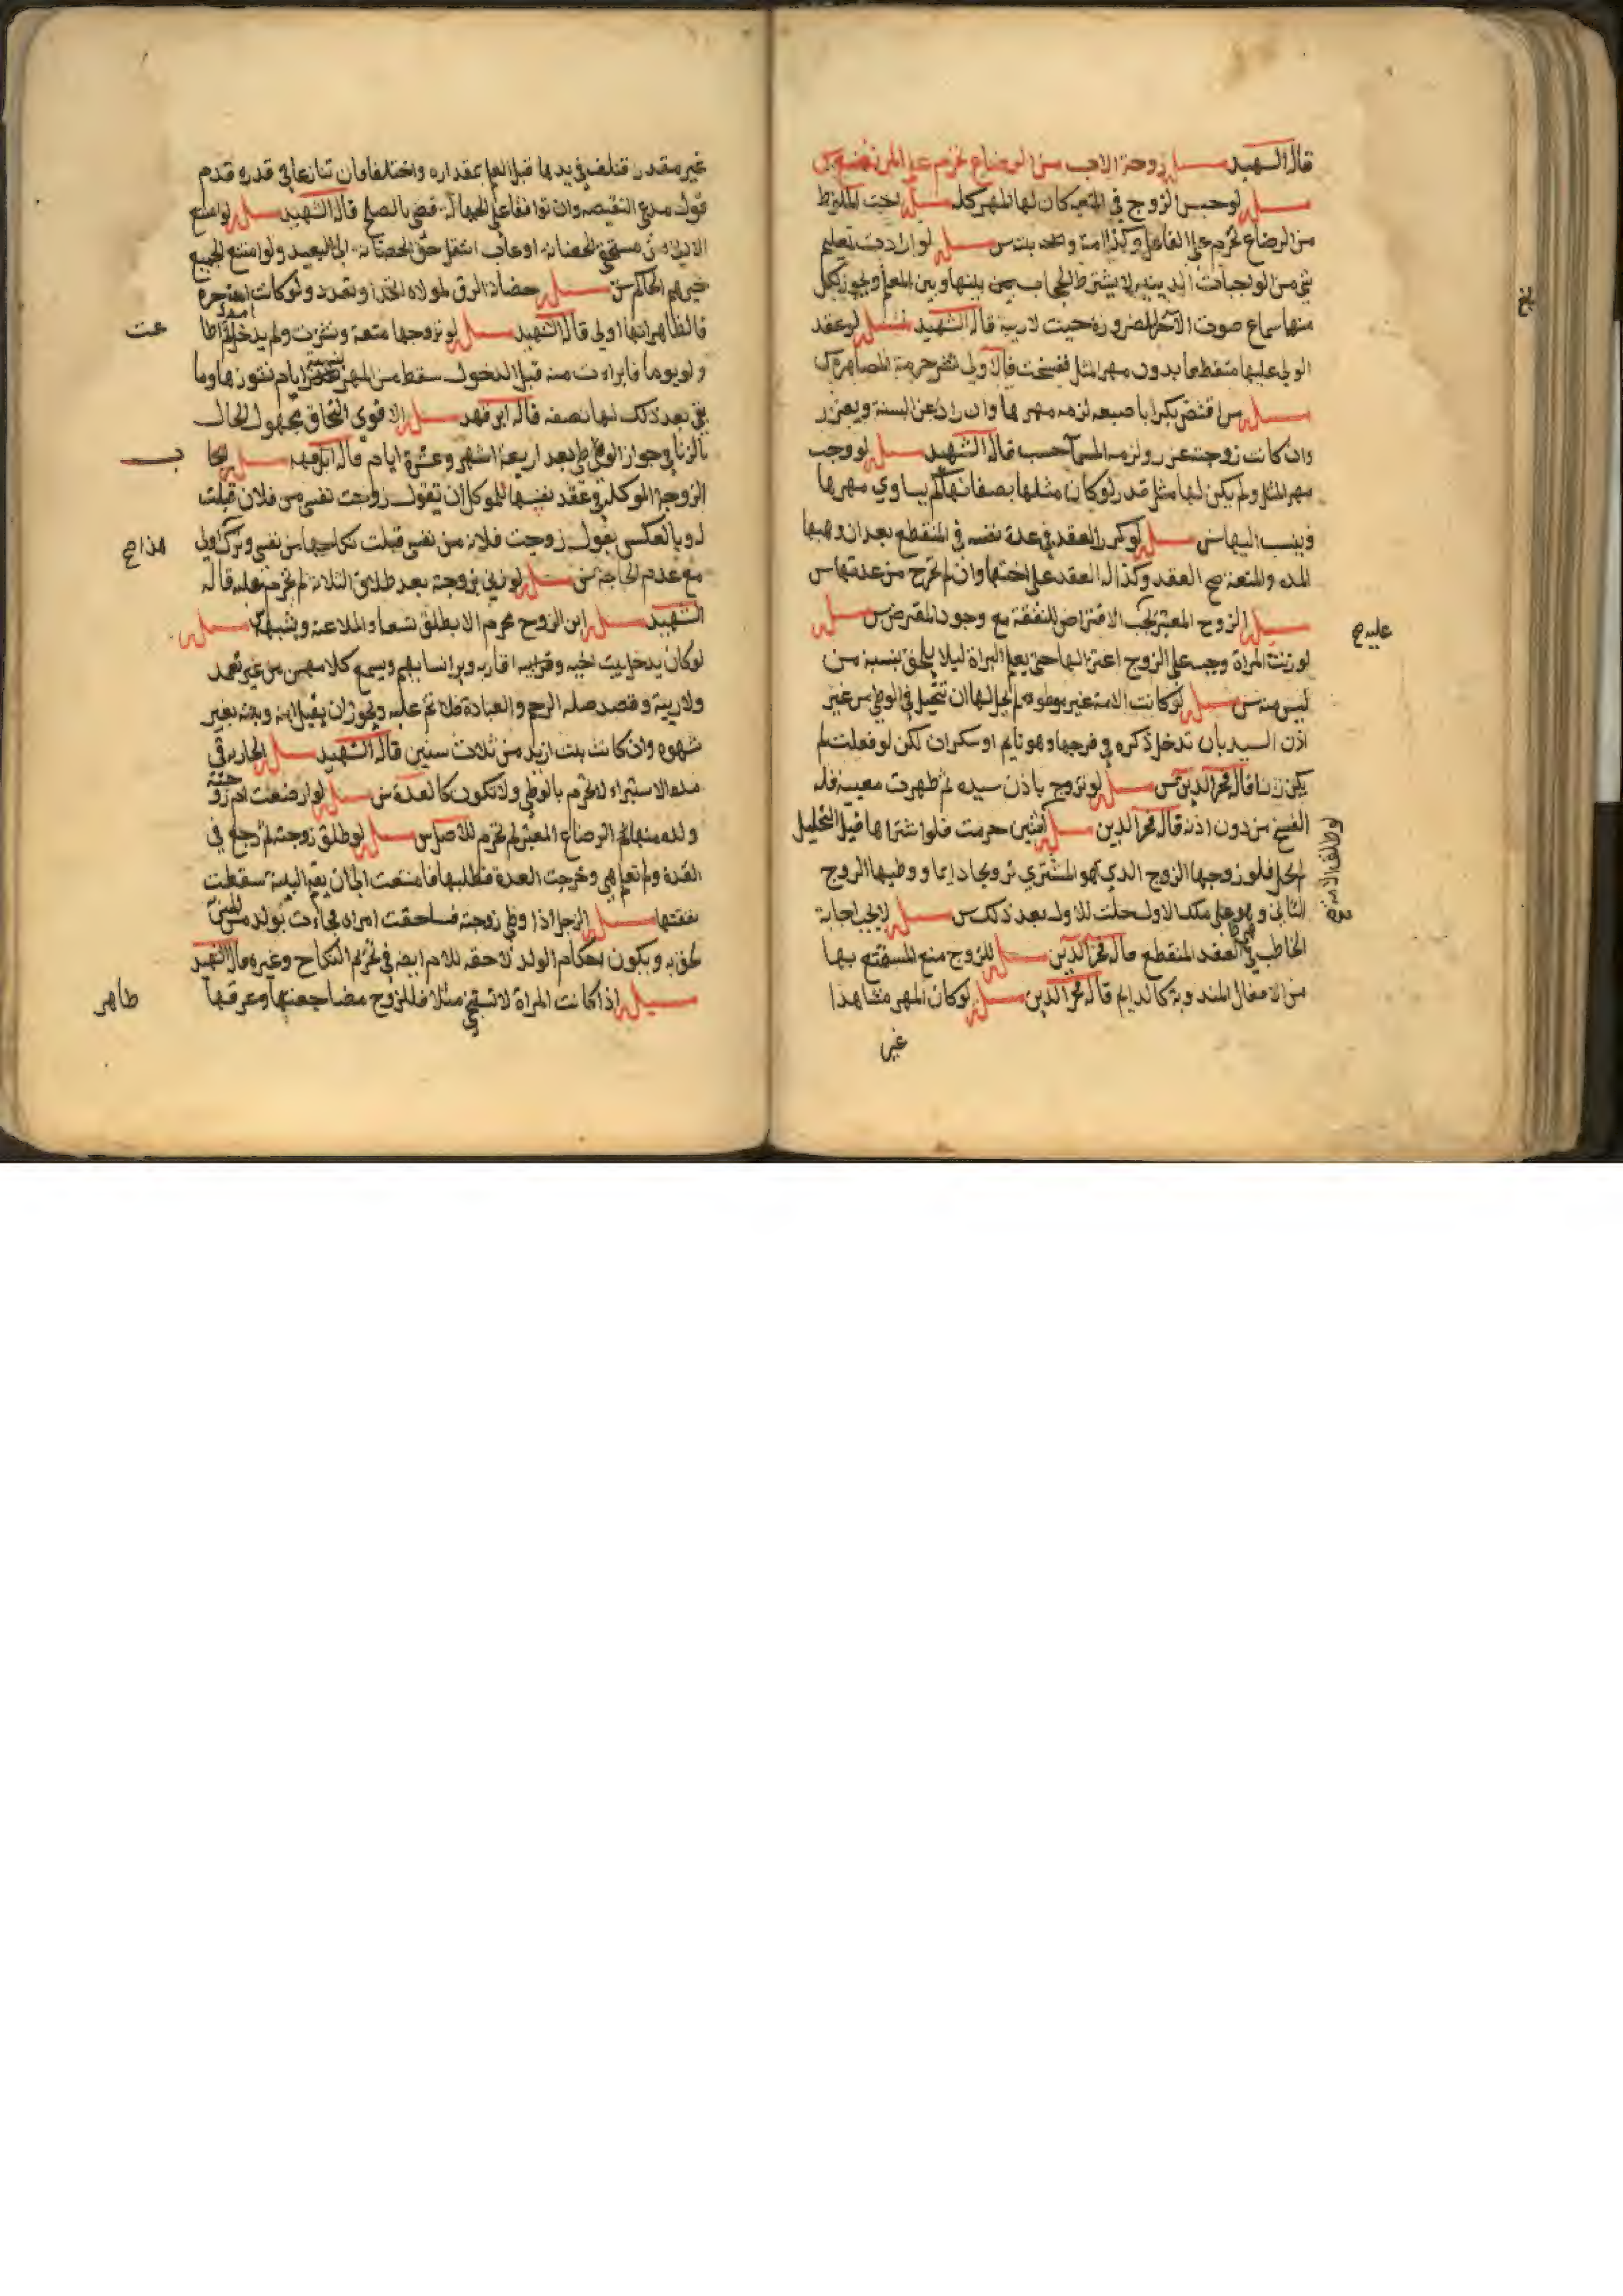 قال الشهيد مسئلة زوجة الاب من الرضاع تحرم على المرتضع س
مسئلة لو حبس الزوج في المتعة كان لها المهر كله مسئلة اخت الملوط
من الرضاع تحرم على الفاعل وكذا امه و بنت س مسئلة لو ارادت تعليم
شي من الواجبات الدينية لا يشترط الحجاب بينها وبين المعلم ويجوز لكل
منها سماع صوت الاخر للضرورة حيث لا ريبة قال الشهيد مسئلة لو عقد
الولي عليها منقطعا بدون مهر المثل ففسخت فالاولى نشر حرمة المصاهرة س
مسئلة من اقتض بكرا باصبعه لزمه مهرها وان زاد عن السنة ويعزر
وان كانت زوجته عزر ولزمه المسمى حسب قال الشهيد مسئلة لو وجب
مهر المثل ولم يكن لها مثل قدر لو كان مثلها بصفاتها كم يساوي مهرها
وينسب اليها س مسئلة لو كرر العقد في عدة نفسه في المنقطع بعد ان وهبها
المده والمتعة صح العقد وكذا له العقد على اختها وان لم تخرج من عدتها س
مسئلة الزوج المعسر يجب الاقتراض للنفقة مع وجود المقرض س مسئلة
لو زنت المراة وجب على الزوج اعتزالها حتى يعلم البراة ليلا يلحق بنسبه من
ليس منه س مسئلة لو كانت الامة غير موطوءه لم يحل لها ان تتحيل في الوطي من غير
اذن السيد بان تدخل ذكره في فرجها وهو نايم او سكران لكن لو فعلت لم
يكن زنا قال فخر الدين س مسئلة لو تزوج باذن سيده ثم ظهرت معيبة فله
الفسخ من دون اذنه قال فخر الدين مسئلة اثنين حرمت فلو اشتراها قبل التحليل
لم يحل فلو زوجها الزوج الذي هو المشتري تزويجا دايما ووطيها الزوج
الثاني وهو على ملك الاول حلت للاول بعد ذلك س مسئلة لا يجب اجابة
الخاطب في العقد المنقطع قاله فخر الدين مسئلة للزوج منع المستمتع بها
من الافعال المندوبة كالدايم قاله فخر الدين مسئلة لو كان المهر مشاهدا
غير
عليه صح
لو طلق الامة
غير مقدر فتلف في يدها قبل العلم بمقداره واختلفا فان تنازعا في قدره قدم
قول مدعي النقيصه وان توافقا على الجهالة قضي بالصلح قال الشهيد مسئلة لو امتنع
الادنى من مستحقي الحضانة او غاب انتقل حق الحضانة الى البعيد ولو امتنع الجميع
خيرهم الحاكم س مسئلة حضانة الرق لمولاه اتحد او تعدد ولو كانت امه حرة
فالظاهر انها اولى قال الشهيد مسئلة لو تزوجها متعة ونشزت ولم يدخل بها
ولو يوما فابراءت منه قبل الدخول سقط من المهر بنسبة ايام نشوزها وما
بقي بعد ذلك لها نصفه قاله ابن فهد مسئلة الاقوى التحاق مجهول الحال
بالزنا في جواز الوطي بعد اربعة اشهر وعشرة ايام قاله ابن فهد مسئلة
الزوجة الموكلة في عقد نفسها للموكل ان تقول زوجت نفسي من فلان قبلت
له وبالعكس يقول زوجت فلانة من نفسي قبلت نكاحها من نفسي وتركه اولى
مع عدم الحاجة س مسئلة لو زنى بزوجته بعد طلاق الثلاثة لم تحرم عليه قاله
الشهيد مسئلة ابن الزوج محرم الا بطلاق تسعا والملاعنة وشبهه مسئلة
لو كان يدخل بيت اخيه وقرابيه اقاربه وبر انسابهم ويسمع كلامهن من غير تعمد
ولا ريبة وقصد صله الرحم والعيادة فلا اثم عليه ويجوز ان يقبل ابنه وبنته بغير
شهوه وان كانت بنت ازيد من ثلاث سنين قال الشهيد مسئلة الجارية في
مده الاستبراء لا تحرم بالوطي ولا تكون كالعدة س مسئلة لو ارضعت ام زوجته
ولده منها الرضاع المعتبر لم تحرم للاصل س مسئلة لو طلق زوجته ثم رجع في
العدة ولم تعلم هي وخرجت العدة فطلبها فامتنعت الى ان يقيم البينة سقطت
نفقتها مسئلة الرجل اذا وطي زوجته فساحقت امراه فجاءت بولد من المني
لحق به ويكون احكام الولد لاحقه للام ايضا في تحريم النكاح وغيره قال الشهيد
مسئلة اذا كانت المراة لا تستحي مثلا فللزوج مضاجعتها وعرقها
طاهر
هذا صح